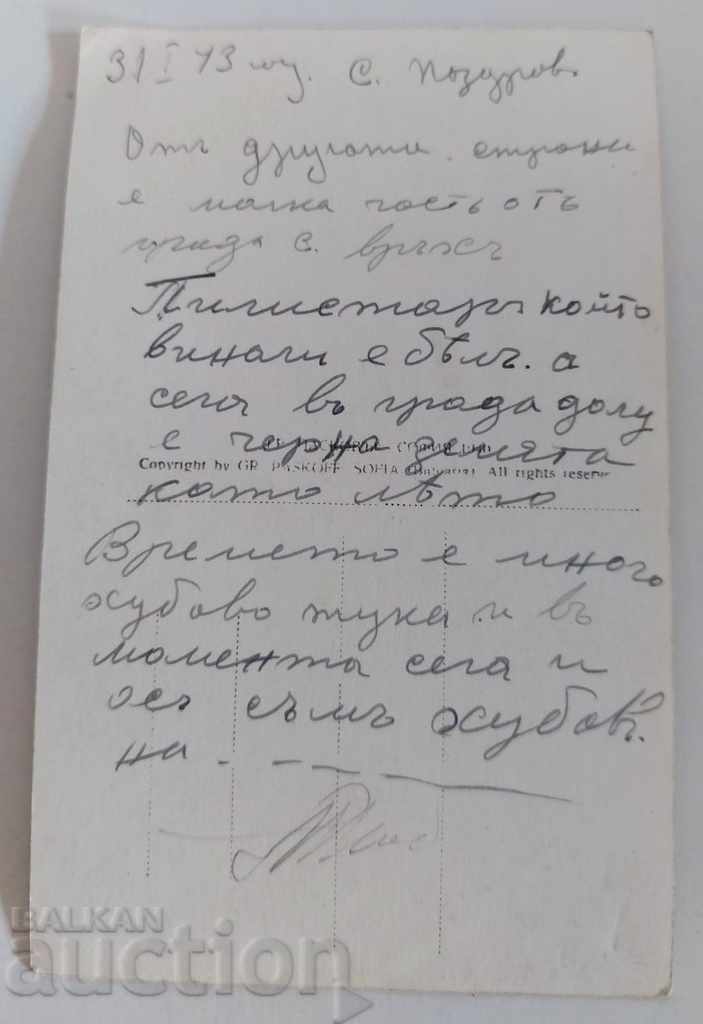 31 I 43 год. С. Поздрав
Отъ другата страна
е малка часть отъ
града с. връхъ
който
винаги е бѣлъ. а
сега въ града долу
е черна земята
Copyright by GR. PASKOFF SOFIA (Bulgaria) All rights reserv
като лѣто
Времето е много
хубаво тука и въ
момента сега и
азъ съмъ хубав.
на.
BALKAN
auction